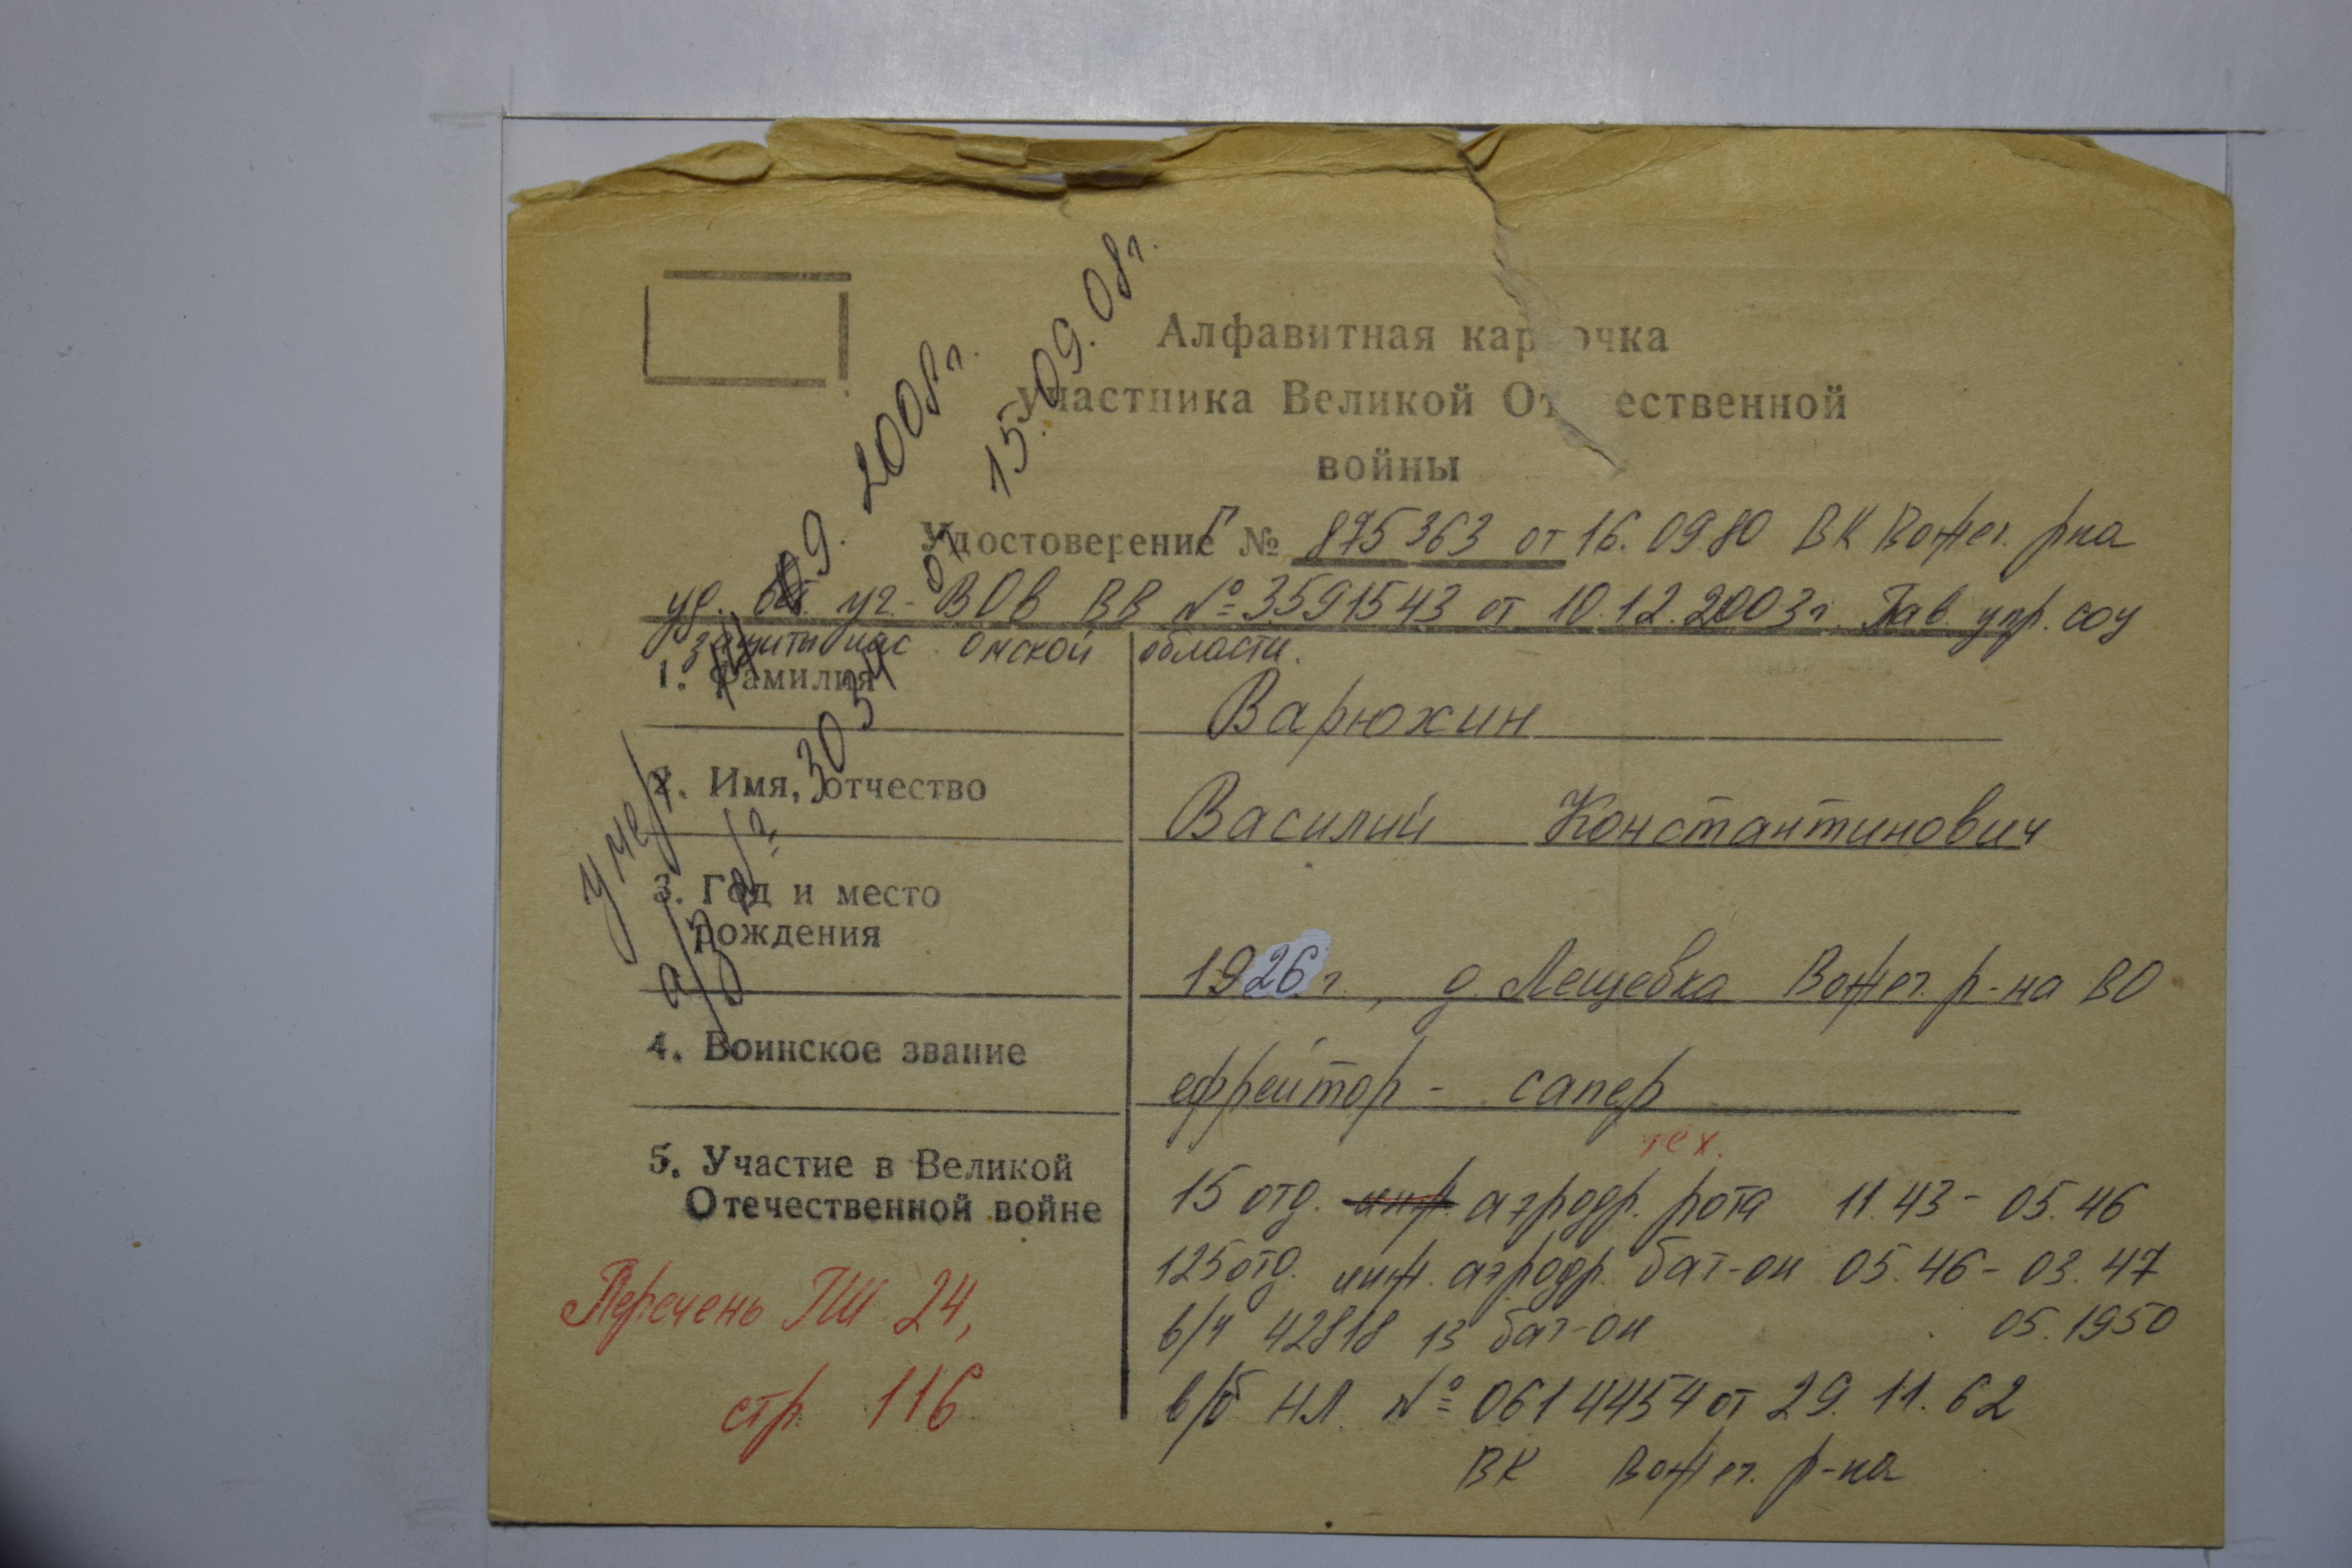 Алфавитная карточка
участника Великой Отечественной
войны
Удостоверение Г № 875363 от 16.09.80 ВК Вожег. р-на
уд. вет. уч. ВОв ВВ № 3591543 от 10.12.2003 г. Глав. упр. соц
защиты нас. Омской области.
1. Фамилия
Варюхин
2. Имя, отчество
Василий Константинович
3. Год и место
рождения
1926 г., д. Лещевка Вожег. р-на ВО
4. Воинское звание
ефрейтор - сапер
5. Участие в Великой
Отечественной войне
тех.
15 отд. инж. аэродр. рота 11.43 - 05.46
125 отд. инж. аэродр. бат-он 05.46 - 03.47
в/ч 42818 13 бат-он 05.1950
в/б НЛ № 0614454 от 29.11.62
ВК Вожег. р-на
Перечень ГШ 24,
стр. 116
умер 14.09.2008 г.
а/з 3034 от 15.09.08 г.